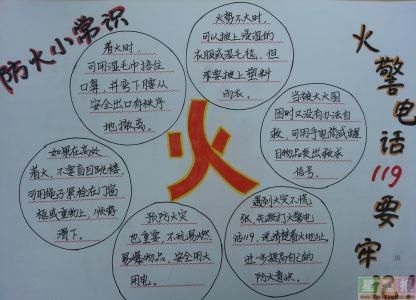 防火小常识
着火时
可用湿毛巾捂住
口鼻，并弯下腰从
安全出口有秩序
地撤离。
火势不大时，
可以披上浸湿的
衣服或湿毛毯，但
不要披上塑料
雨衣。
当被大火围
困时又没有办法自
救，可用手电筒或醒
目物品发出求救
信号。
如果在高处
着火，不要盲目跳楼，
可用绳子系栓在门窗
框或重物上，顺势
滑下。
预防火灾
也重要，不玩易燃
易爆物品，安全用火
用电。
遇到火灾不慌
张，先拨打火警电
话119，说清楚着火地址。
进步提高自己的
防火意识。
火
火警电话119要牢